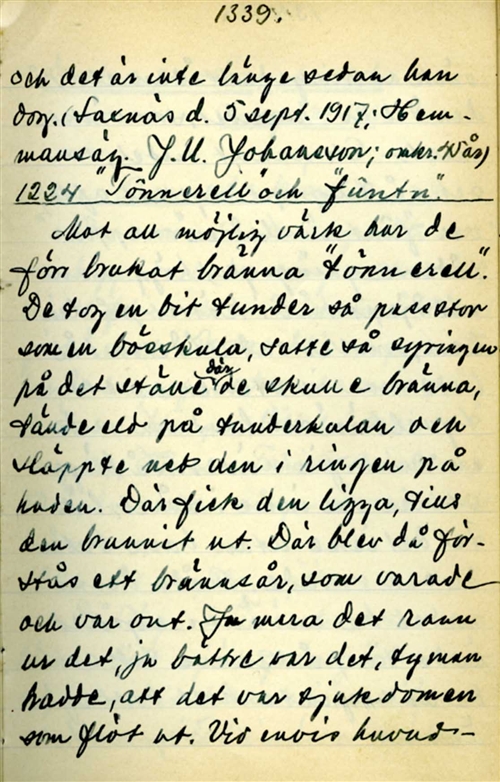 1339.
och det är inte länge sedan han
dog. (Saxnäs d. 5 sept. 1917; Hem-
mansäg. J.U. Johansson; omkr. 45 år)
1224 "Tönnerell" och "füntn".
Mot all möjlig värk har de
förr brukat bränna "tönnerell".
De tog en bit tunder så pass stor
som en bösskula, satte så syringen
på det ställe där de skulle bränna,
tände eld på tunderkulan och
släppte ned den i ringen på
huden. Där fick den ligga, tills
den brunnit ut. Där blev då för-
stås ett brännsår, som varade
och var ont. Ju mera det rann
ur det, ju bättre var det, ty man
hadde, att det var sjukdomen
som flöt ut. Vid envis huvud-